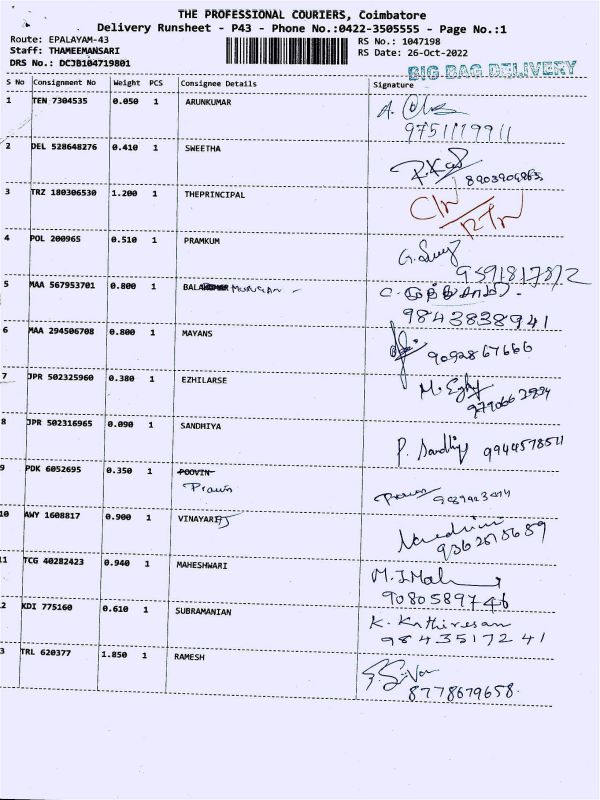 THE PROFESSIONAL COURIERS, Coimbatore
Delivery Runsheet - P43 - Phone No.:0422-3505555 - Page No.:1
Route: EPALAYAM-43 RS No.: 1047198
Staff: THAMEEMANSARI RS Date: 26-Oct-2022
DRS No.: DCJB104719801 BIG BAG DELIVERY
S No Consignment No Weight PCS Consignee Details Signature
1 TEN 7304535 0.050 1 ARUNKUMAR A.
9751119911
2 DEL 528648276 0.410 1 SWEETHA
3 TRZ 180306530 1.200 1 THEPRINCIPAL
4 POL 200965 0.510 1 PRAMKUM G.
5 MAA 567953701 0.800 1 BALA MURUGAN - C.
9843838941
6 MAA 294506708 0.800 1 MAYANS
9092867666
7 JPR 502325960 0.380 1 EZHILARSE M.
8 JPR 502316965 0.090 1 SANDHIYA P. Sandhiya 9944578511
9 PDK 6052695 0.350 1 POOVIN
Pravin
10 AWY 1608817 0.900 1 VINAYARI
11 TCG 40282423 0.940 1 MAHESHWARI M.
9080589746
2 KDI 775160 0.610 1 SUBRAMANIAN K. Kathiresan
9843517241
3 TRL 620377 1.850 1 RAMESH
8778679658.